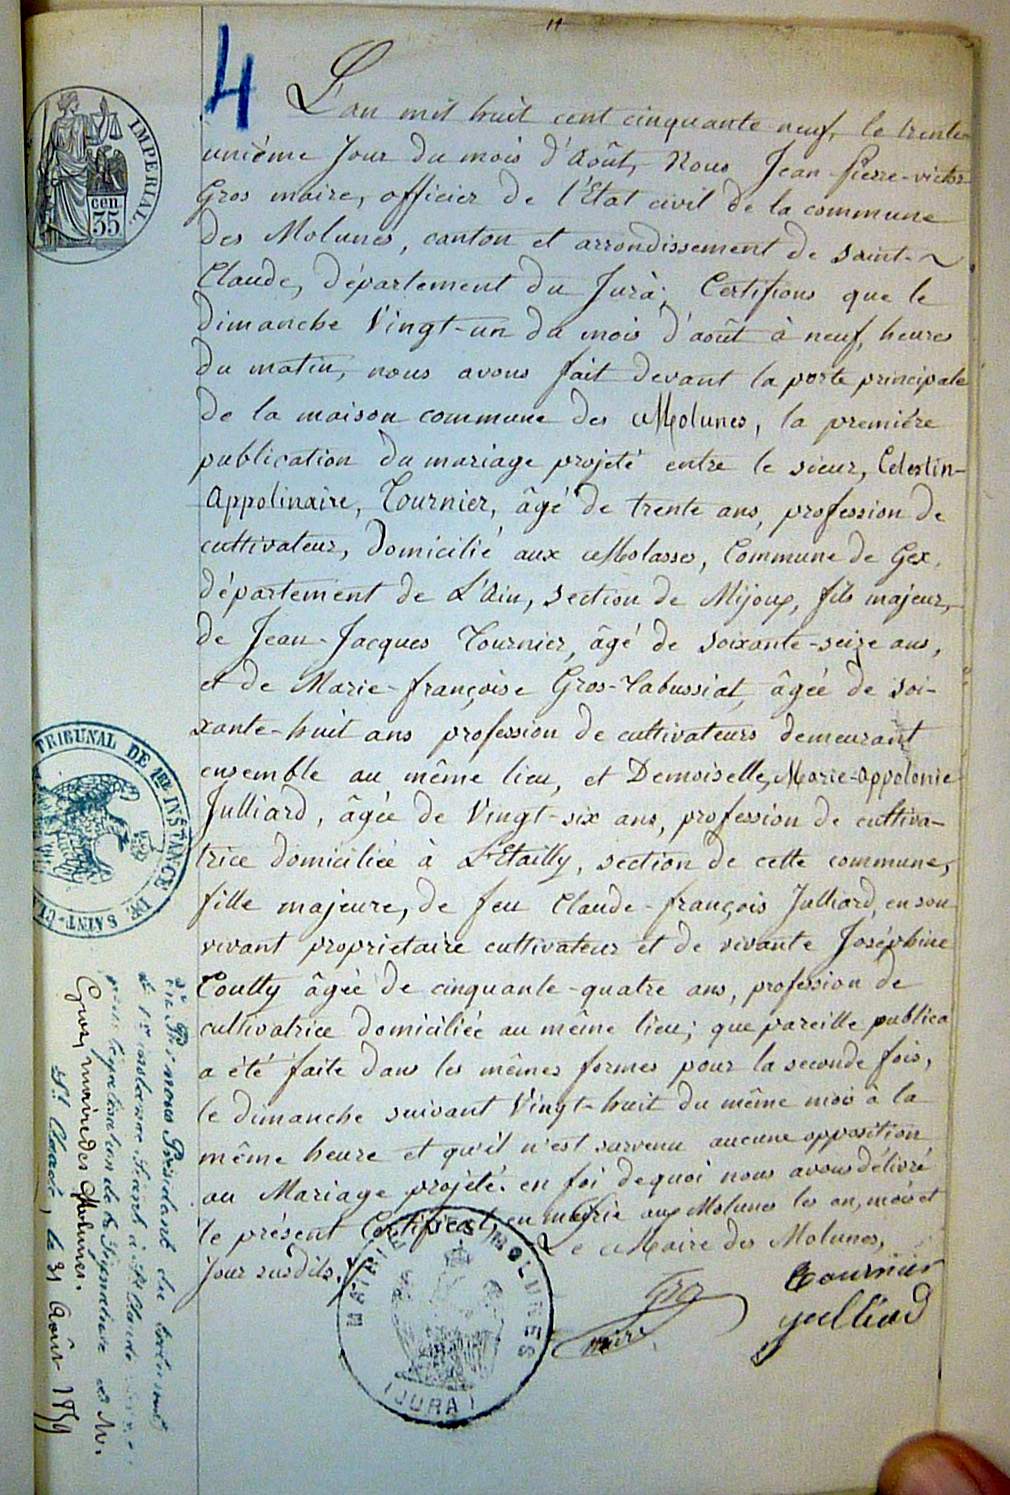 4
L'an mil huit cent cinquante neuf, le trente
unième Jour du mois d'Août, Nous Jean-Pierre-victor
Gros maire, officier de l'Etat civil de la commune
des Molunes, canton et arrondissement de saint-
Claude, département du Jura; Certifions que le
dimanche Vingt-un du mois d'août à neuf, heures
du matin, nous avons fait devant la porte principale
de la maison commune des Molunes, la première
publication du mariage projeté entre le sieur, Celestin-
Appolinaire, Tournier, âgé de trente ans, profession de
cultivateur, domicilié aux Molasses, Commune de Gex,
département de L'Ain, section de Mijoux, fils majeur,
de Jean-Jacques Tournier, âgé de soixante-seize ans,
et de Marie-françoise Gros-Tabussiat, âgée de soi-
xante-huit ans profession de cultivateurs demeurant
ensemble au même lieu, et Demoiselle, Marie-appolonie
Julliard, âgée de Vingt-six ans, profession de cultiva-
trice domiciliée à L'Etailly, section de cette commune,
fille majeure, de feu Claude-françois Julliard, en son
vivant propriétaire cultivateur et de vivante Joséphine
Coutty âgée de cinquante-quatre ans, profession de
cultivatrice domiciliée au même lieu; que pareille publica
a été faite dans les mêmes formes pour la seconde fois,
le dimanche suivant Vingt-huit du même mois à la
même heure et qu'il n'est survenu aucune opposition
au Mariage projeté. en foi de quoi nous avons délivré
le présent Certificat, en mairie aux Molunes les an, mois et
Jour susdits.
Le Maire des Molunes,
Tournier
Gros
maire
julliard
IMPERIAL.
cen.
35
TRIBUNAL DE 1ERE INSTANCE DE SAINT-CL
MAIRIE DES MOLUNES
(JURA)
Président du tribunal
légalisation de la Signature de M.
Gros, maire des Molunes.
St Claude, le 31 Août 1859